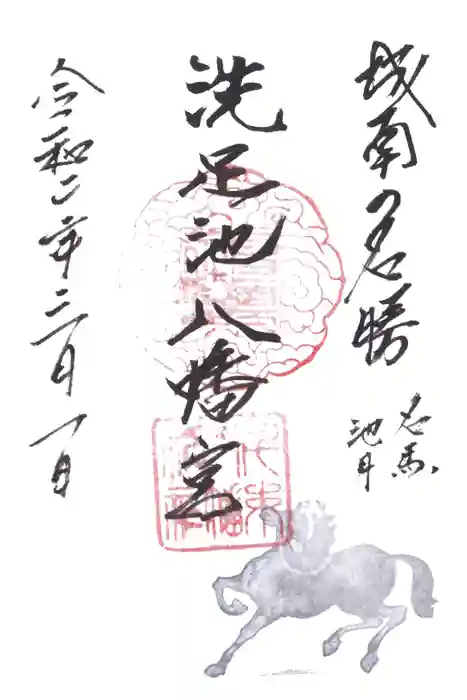 城南の名勝
名馬
池月
洗足池八幡宮
令和二年三月一日